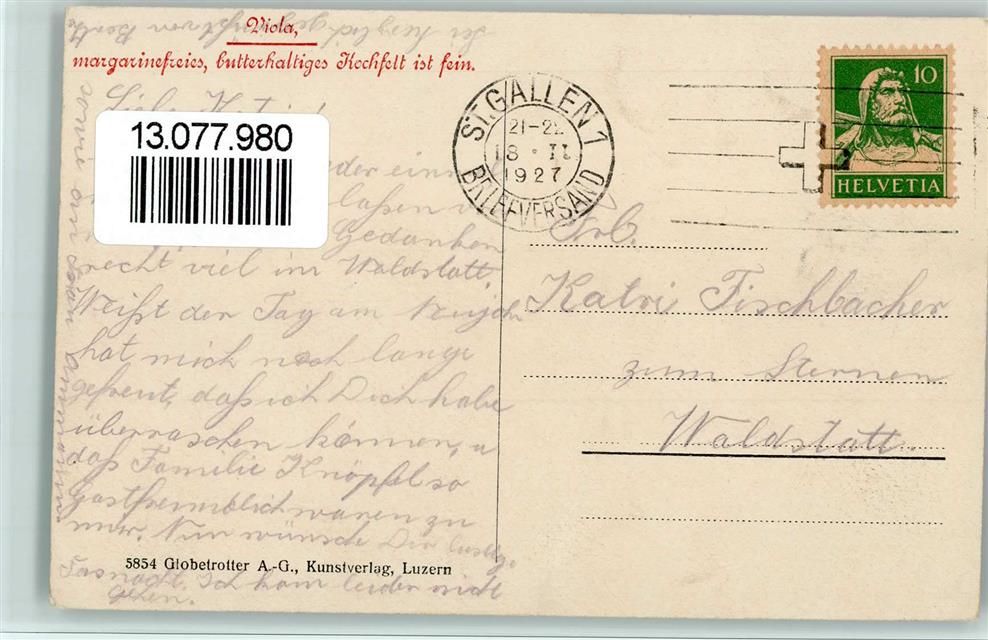 Viola,
margarinefreies, butterhaltiges Kochfett ist fein.
13.077.980
ST. GALLEN 1
21-22
18 · II
1927
BRIEFVERSAND
10
HELVETIA
Gedanken
recht viel im Waldstatt.
Weißt der Tag am Neujahr
hat mich noch lange
gefreut, daß ich Dich habe
überraschen können, u
daß Familie Knöpfel so
gastfreundlich waren zu
mir. Nun wünsche Dir lustige
Fasnacht. Ich kam leider nicht
gehen.
Frl.
Katri Fischbacher
zum Sternen
Waldstatt
5854 Globetrotter A.-G., Kunstverlag, Luzern